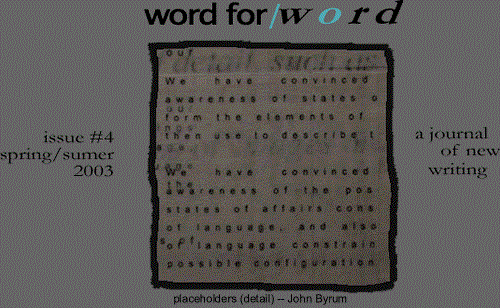 word for/word
our
detail, such as
We have convinced
awareness of states o
form the elements of
then use to describe t
We have convinced
the
awareness of the pos
states of affairs cons
of language and also
of language constrain
possible configuration
issue #4
spring/sumer
2003
a journal
of new
writing
placeholders (detail) -- John Byrum